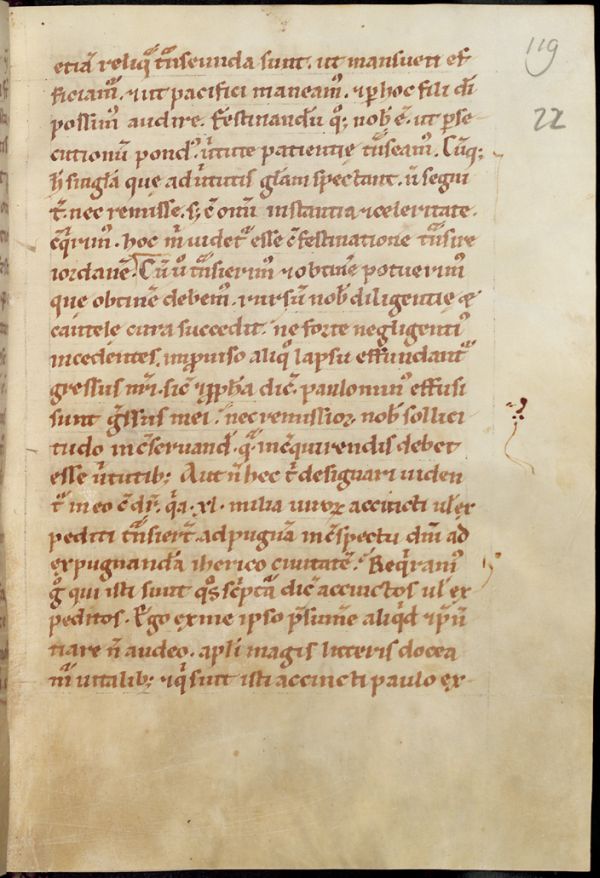 119
22
etiā reliq̄ t̄nseunda sunt. ut mansueti ef
ficiam᷒. & ut pacifici maneam᷒. & p̱ hoc fili dī
possim᷒ audire. Festinandū q̊; nob̄ ē. ut p̱se
cutionū pond᷒. v̄tute patientię t̄nseam᷒. Cūq;
h̄ singl̄a que ad v̄tutis gl̄am spectant. n̄ segni
t̄. nec remisse. s; c̄ om̄i instantia & celeritate.
c̄q̄rim᷒. hoc m̄ videt᷑ esse c̄ festinatione t̄nsire
iordanē. Cū v̊ t̄nsierim᷒ & obtinē potuerim᷒
que obtinē debem᷒. rursū nob̄ diligentię &
cautele cura succedit. ne forte negligenti᷒
incedentes. inp̱viso aliq̊ lapsu effundant᷑
gressus n̄ri. sic̄ & p̱ph̄a dic̄. paulo min᷒ effusi
sunt ḡssus mei. nec remissior nob̄ sollici
tudo in c̄servand᷒. q̄ in c̄quirendis debet
esse v̄tutib; Aut n̄ hec t̄ designari viden
t᷑ in eo c̄ dr̄. q̄a .xl. milia viroꝝ accincti ul̄ ex
pediti t̄nsiert̄. ad pugnā in c̄spectu dn̄i ad
expugnandā iherico civitatē. Req̄ram᷒
g̊ qui isti sunt q̊s sc̄pt̄a dic̄ accinctos ul̄ ex
peditos. Ego ex me ipso p̄sum̄e aliq̄d & p̱n̄
tiare n̄ audeo. apl̄i magis litteris docea
m᷑ vitalib; & q̄ sunt isti accincti paulo ex